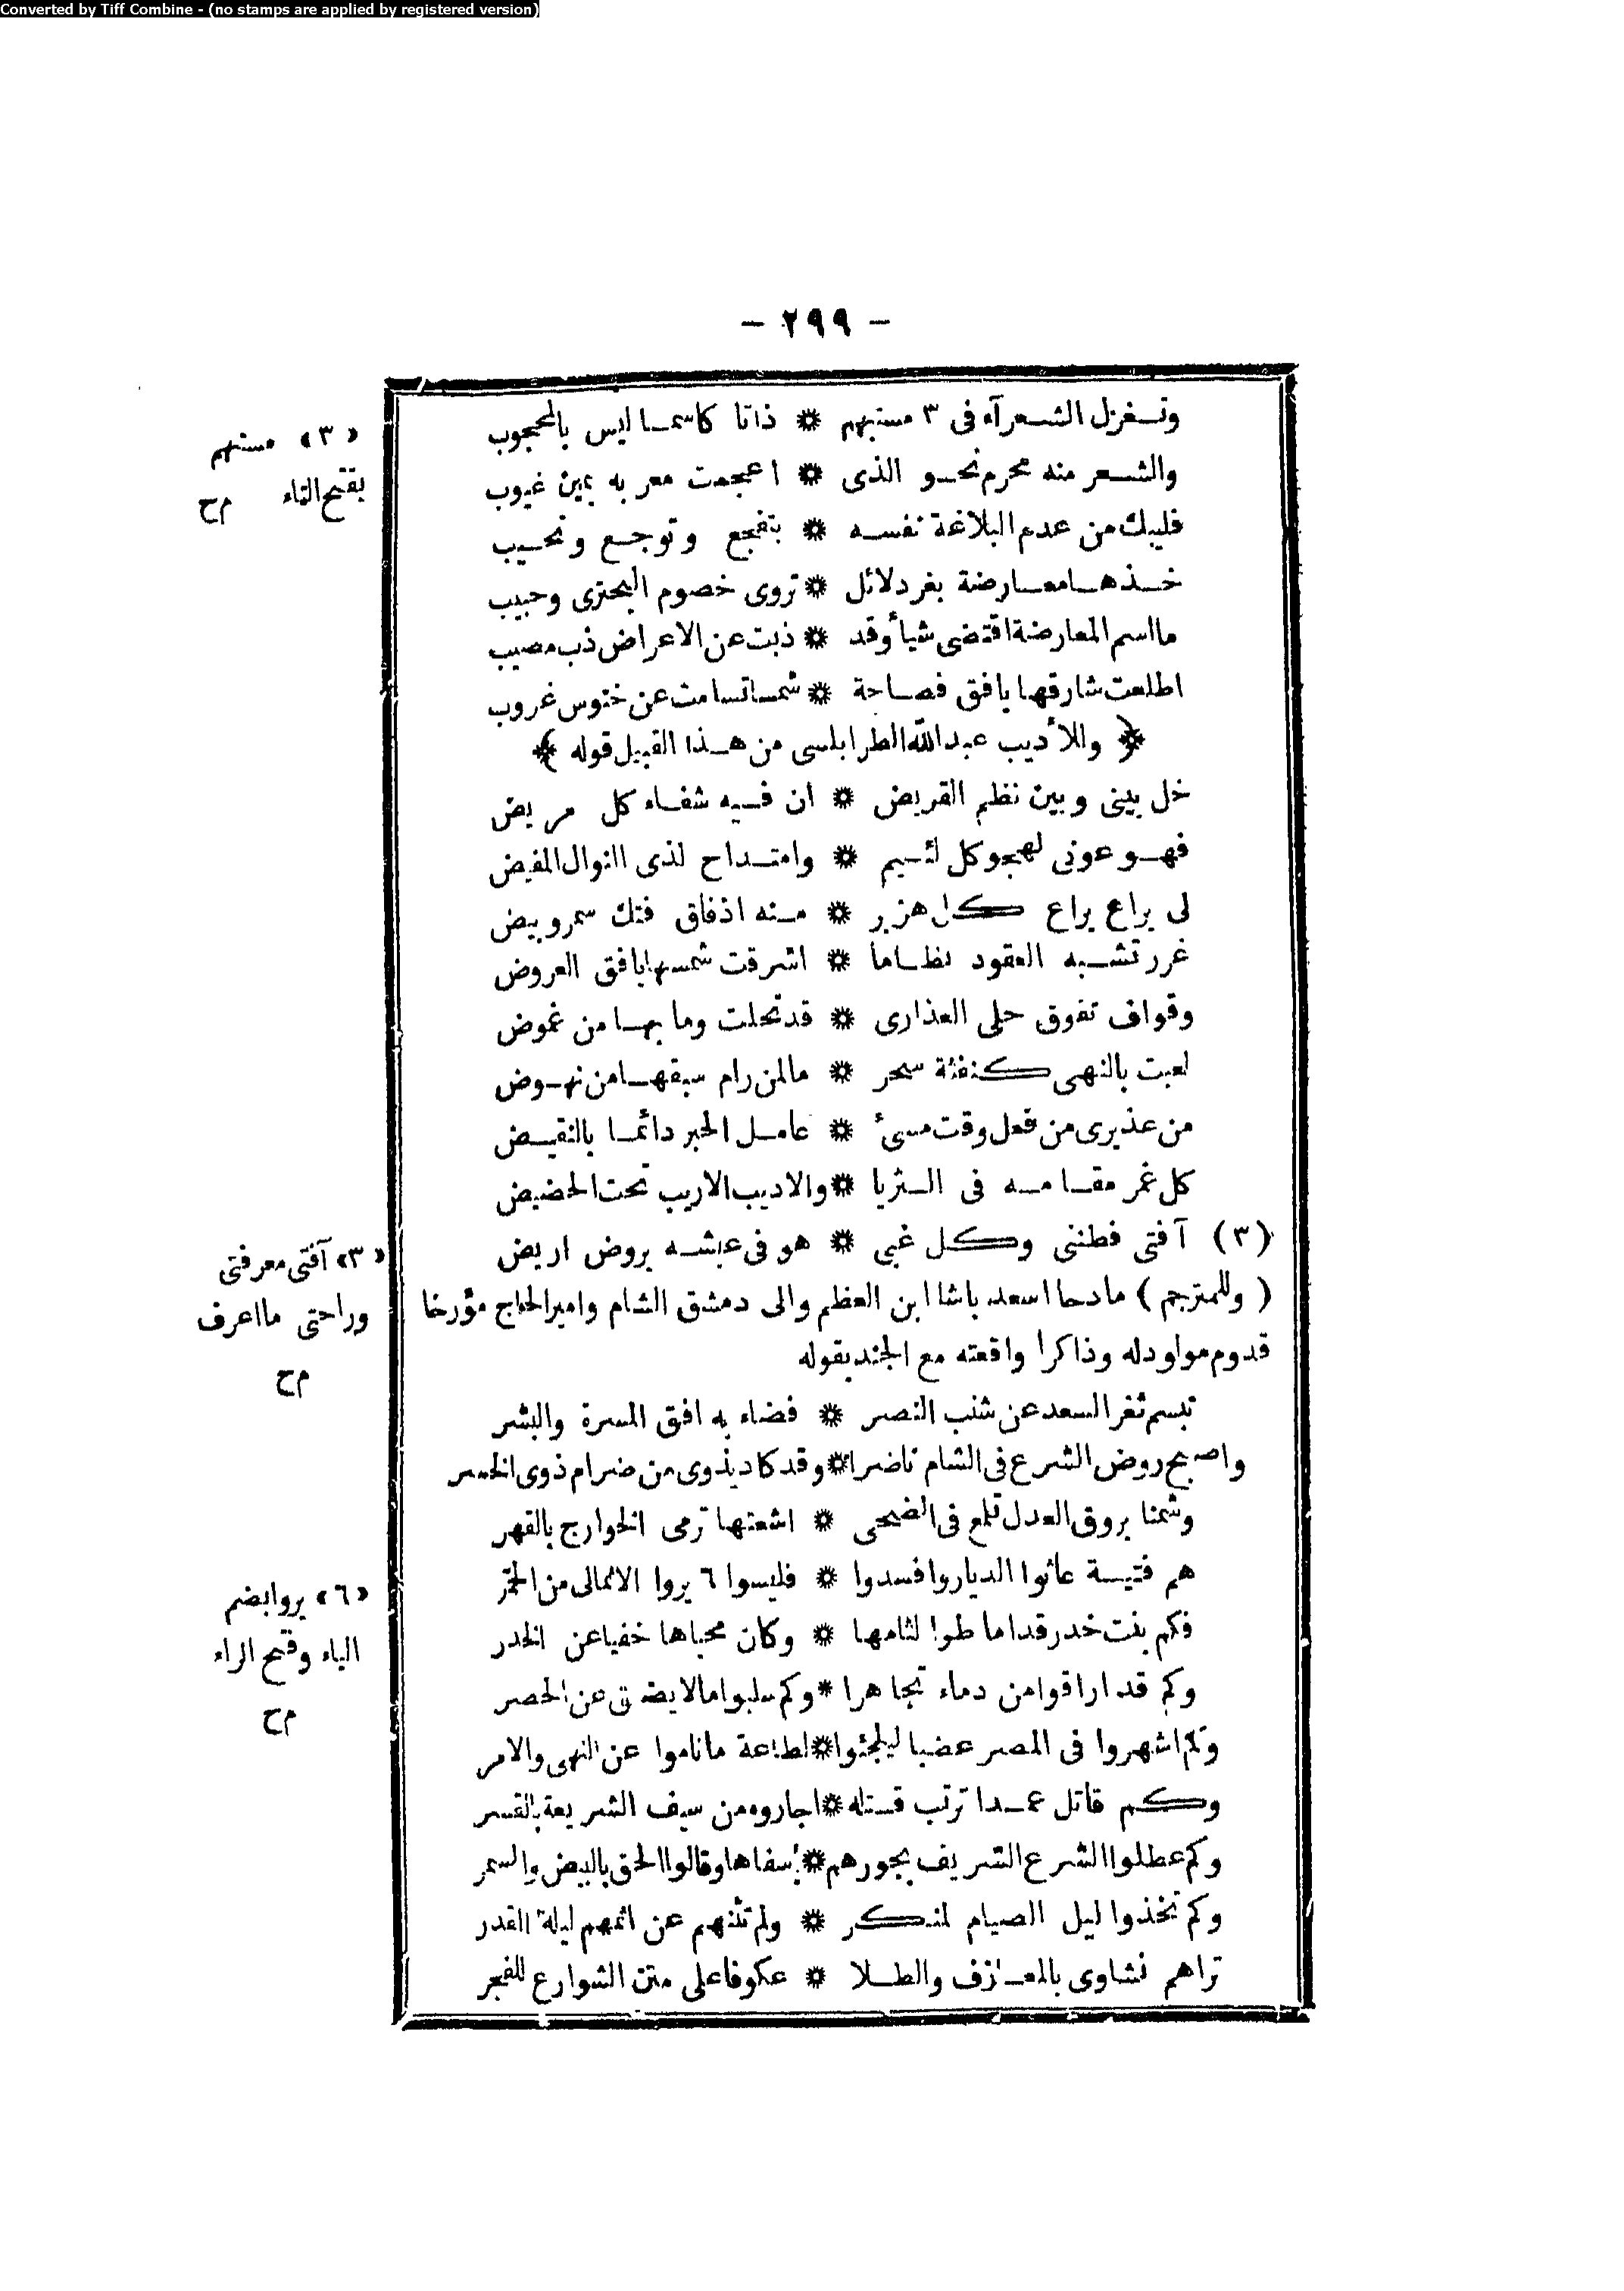 Converted by Tiff Combine - (no stamps are applied by registered version)
- ٢٩٩ -
وتغزل الشعرآء فى ٣ مستبهم * ذاتا كاسما ليس بالمحجوب
والشعر منه محرم نحو الذى * اعجمت معربه بمين غيوب
فليبك من عدم البلاغة نفسه * بتفجع وتوجع ونحيب
خذها معارضة بغر دلائل * تروى خصوم البحترى وحبيب
ما اسم المعارضة اقتضى شيأ وقد * ذبت عن الاعراض ذب مصيب
اطلعت شارقها بافق فصاحة * شمسا تسامت عن خنوس غروب
﴿ وللأديب عبدالله الطرابلسى من هذا القبيل قوله ﴾
خل بينى وبين نظم القريض * ان فيه شفاء كل مريض
فهو عونى لهجو كل لئيم * وامتداح لذى النوال المفيض
لى يراع يراع كل هزبر * منه اذ فاق فتك سمر وبيض
غرر تشبه العقود نظاما * اشرقت شمسها بافق العروض
وقواف تفوق حلى العذارى * قد تحلت وما بها من غموض
لعبت بالنهى كنفثة سحر * مالمن رام سبقها من نهوض
من عذيرى من فعل وقت مسئ * عامل الحبر دائما بالنقيض
كل غمر مقامه فى الثريا * والاديب الاريب تحت الحضيض
(٣) آفتى فطنتى وكل غبى * هو فى عيشه بروض اريض
( وللمترجم ) مادحا اسعد باشا ابن العظم والى دمشق الشام وامير الحاج مؤرخا
قدوم مولود له وذاكرا واقعته مع الجند بقوله
تبسم ثغر السعد عن شنب النصر * فضاء به افق المسرة والبشر
واصبح روض الشرع فى الشام ناضرا * وقد كاد يذوى من ضرام ذوى الخسر
وشمنا بروق العدل تلمع فى الضحى * اشعتها ترمى الخوارج بالقهر
هم فتية عاثوا الديار وافسدوا * فليسوا ٦ يروا الا ثمالى من الخمر
فكم بنت خدر قد اماطوا لثامها * وكان محياها خفيا عن الخدر
وكم قد اراقوا من دماء تجاهرا * وكم سلبوا مالا يضيق عن الحصر
وكم اشهروا فى المصر عضبا ليلجئوا * لطاعة ما ناموا عن النهى والامر
وكم قاتل عمدا ترتب قتله * اجاروه من سيف الشريعة بالقسر
وكم عطلوا الشرع الشريف بجورهم * سفاها وقالوا الحق بالبيض والسمر
وكم تخذوا ليل الصيام لمنكر * ولم تثنهم عن اثمهم ليلة القدر
تراهم نشاوى بالمعازف والطلا * عكوفا على متن الشوارع للفجر
«٣» مستبهم
بفتح التاء م ح
«٣» آفتى معرفتى
وراحتى مااعرف
م ح
«٦» يروا بضم
الياء وفتح الراء
م ح